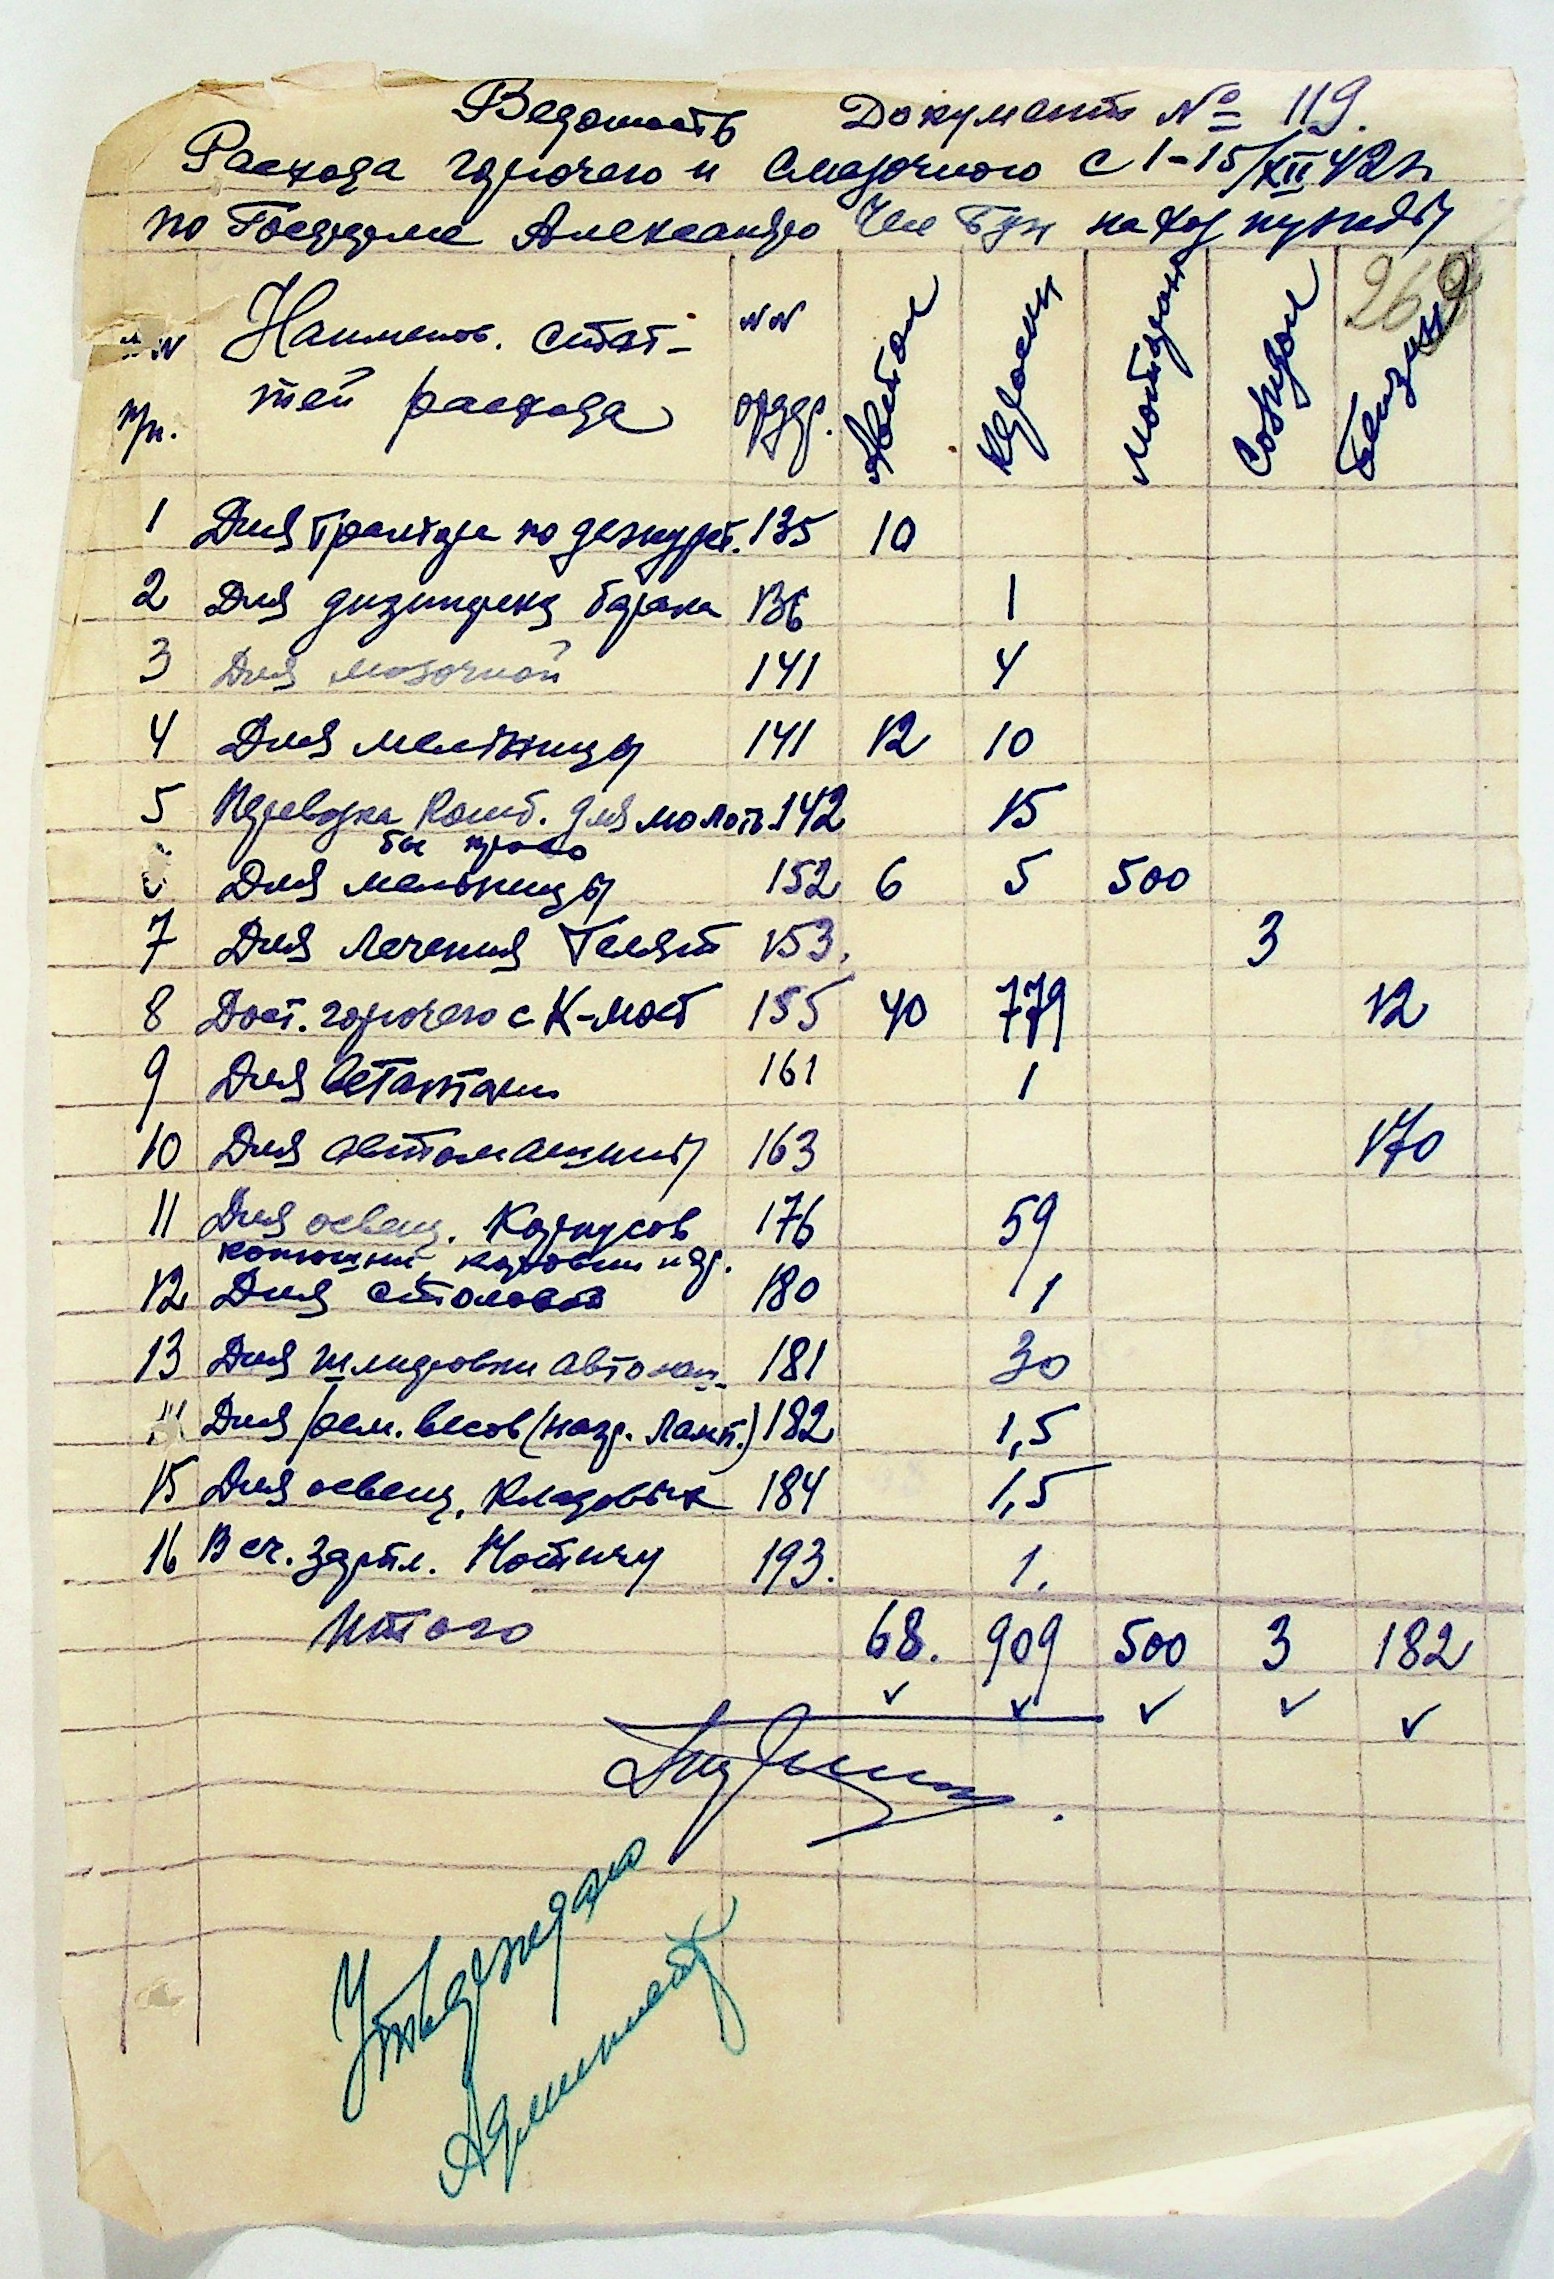 Ведомость Документ № 119.
Расхода горючего и смазочного с 1-15/XII 42 г.
по Госферме Александро на хоз нужды
262
№№ п/п. Наименов. стат-тей расхода №№ ордер. Автол Керосин Нотгрол Солидол Бензин
1 Для трактора по дежурст. 135 10
2 Для дизинфекц барака 136 1
3 Для 141 4
4 Для мельницы 141 12 10
5 Перевозка комб. для молоть 142 15
бы просо
Для мельницы 152 6 5 500
7 Для лечения телят 153. 3
8 Дост. горючего с К-мост 155 40 779 12
9 Для 161 1
10 Для автомашины 163 170
11 Для освещ. корпусов 176 59
конюшни, коровни и др.
12 Для столовой 180 1
13 Для шлифовки автомаш. 181 30
14 Для рем. весов (назр. ламп.) 182 1,5
15 Для освещ. кладовых 184 1,5
16 В сч. зарпл. 193. 1.
Итого 68. 909 500 3 182
Утверждаю